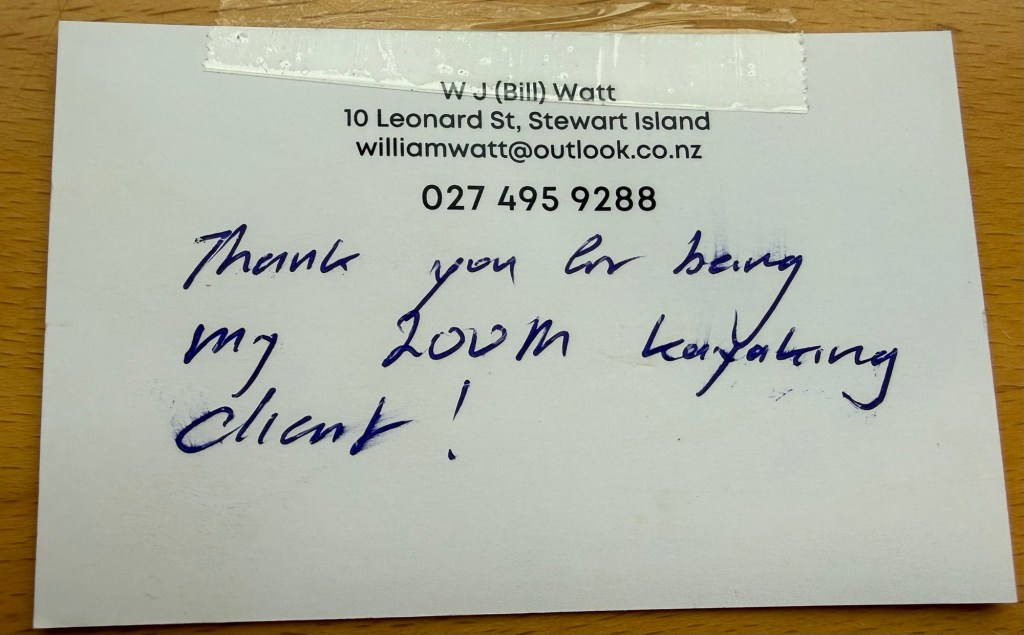 W J (Bill) Watt
10 Leonard St, Stewart Island
williamwatt@outlook.co.nz
027 495 9288
Thank you for being
my 200th kayaking
client!